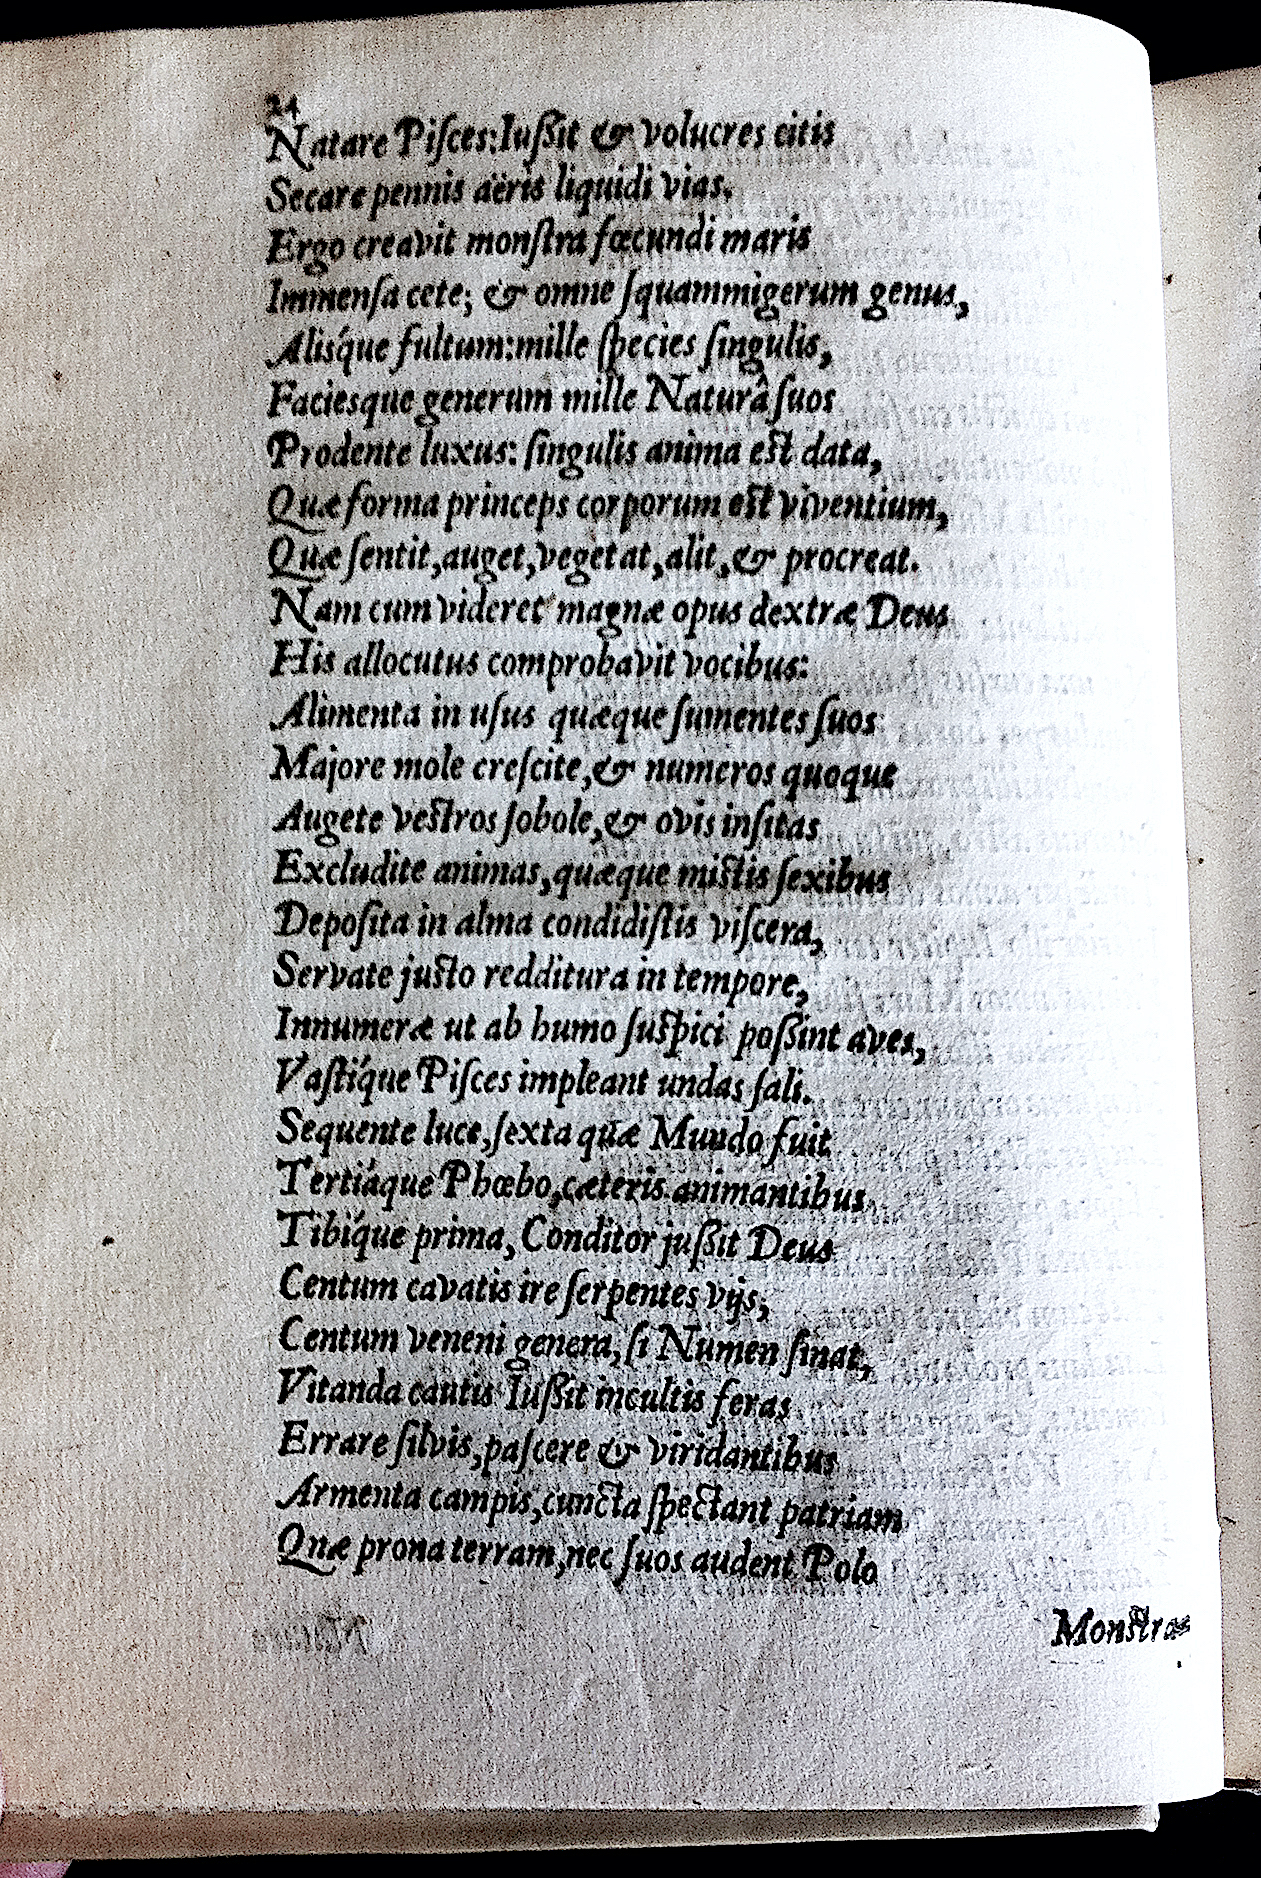 24
Natare Piſces: Iuſsit & volucres citis
Secare pennis aëris liquidi vias.
Ergo creavit monſtra fœcundi maris
Immenſa cete; & omne ſquammigerum genus,
Aliſq́ue fultum: mille ſpecies ſingulis,
Facieſque generum mille Naturâ ſuos
Prodente luxus: ſingulis anima eſt data,
Quæ forma princeps corporum eſt viventium,
Quæ ſentit, auget, vegetat, alit, & procreat.
Nam cum videret magnæ opus dextræ Deus
His allocutus comprobavit vocibus:
Alimenta in uſus quæque ſumentes ſuos
Majore mole creſcite, & numeros quoque
Augete veſtros ſobole, & ovis inſitas
Excludite animas, quæque miſtis ſexibus
Depoſita in alma condidiſtis viſcera,
Servate juſto redditura in tempore,
Innumeræ ut ab humo ſuſpici poſsint aves,
Vaſtíque Piſces impleant undas ſali.
Sequente luce, ſexta quæ Mundo fuit
Tertiáque Phœbo, cæteris animantibus
Tibíque prima, Conditor juſsit Deus
Centum cavatis ire ſerpentes vijs;
Centum veneni genera, ſi Numen ſinat,
Vitanda cautis Iuſsit incultis feras
Errare ſilvis, paſcere & viridantibus
Armenta campis, cuncta ſpectant patriam
Quæ prona terram, nec ſuos audent Polo